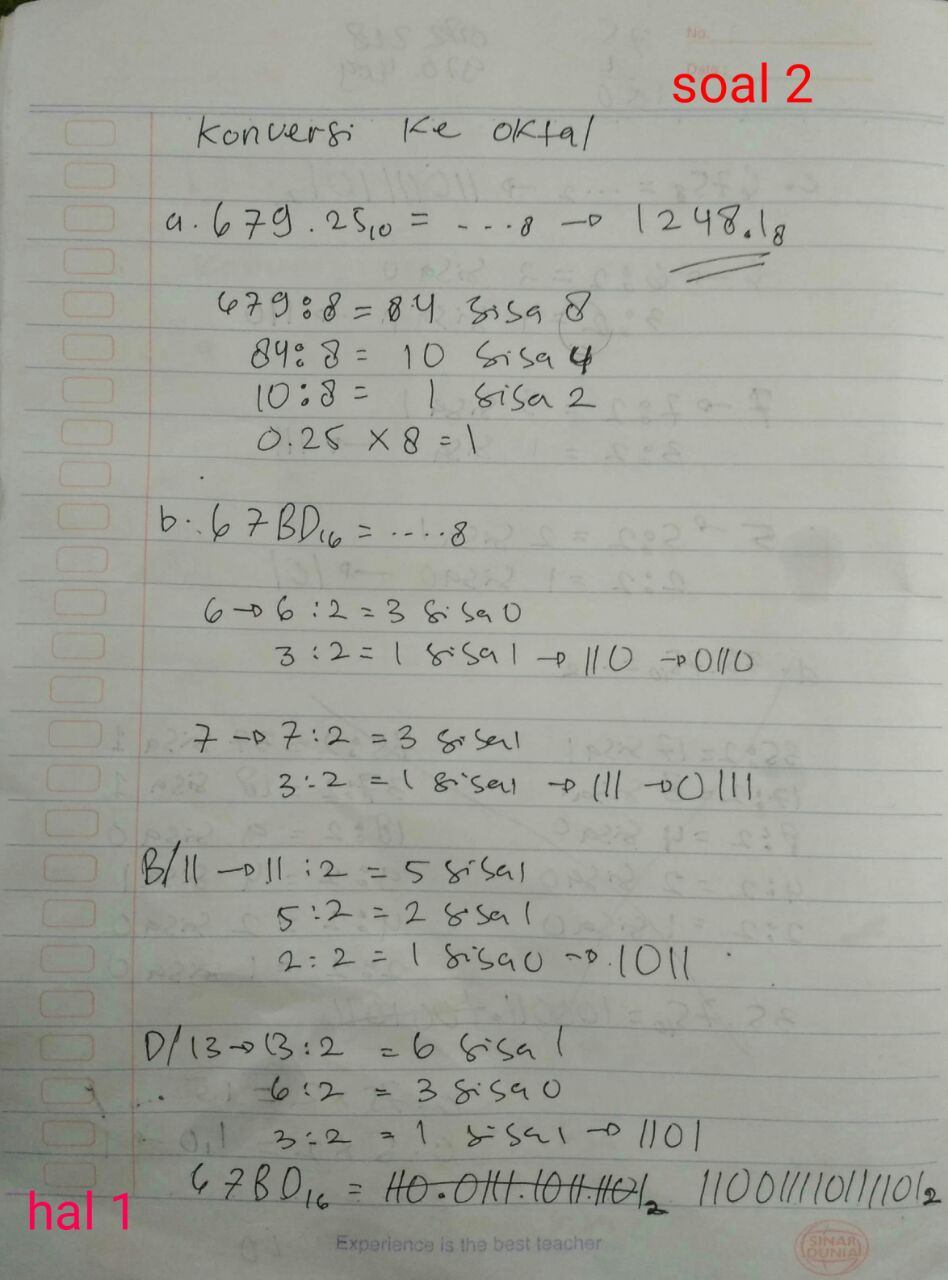 No.
Date:
soal 2
Konversi Ke oktal
a. 679.25₁₀ = ....₈ → 1248.1₈
679 : 8 = 84 sisa 8
84 : 8 = 10 sisa 4
10 : 8 = 1 sisa 2
0.25 x 8 = 1
b. 67BD₁₆ = .....₈
6 → 6 : 2 = 3 sisa 0
3 : 2 = 1 sisa 1 → 110 → 0110
7 → 7 : 2 = 3 sisa 1
3 : 2 = 1 sisa 1 → 111 → 0111
B/11 → 11 : 2 = 5 sisa 1
5 : 2 = 2 sisa 1
2 : 2 = 1 sisa 0 → 1011
D/13 → 13 : 2 = 6 sisa 1
6 : 2 = 3 sisa 0
3 : 2 = 1 sisa 1 → 1101
67BD₁₆ = 110.0111.1011.1101₂ 110011110111101₂
hal 1
Experience is the best teacher
SINAR DUNIA